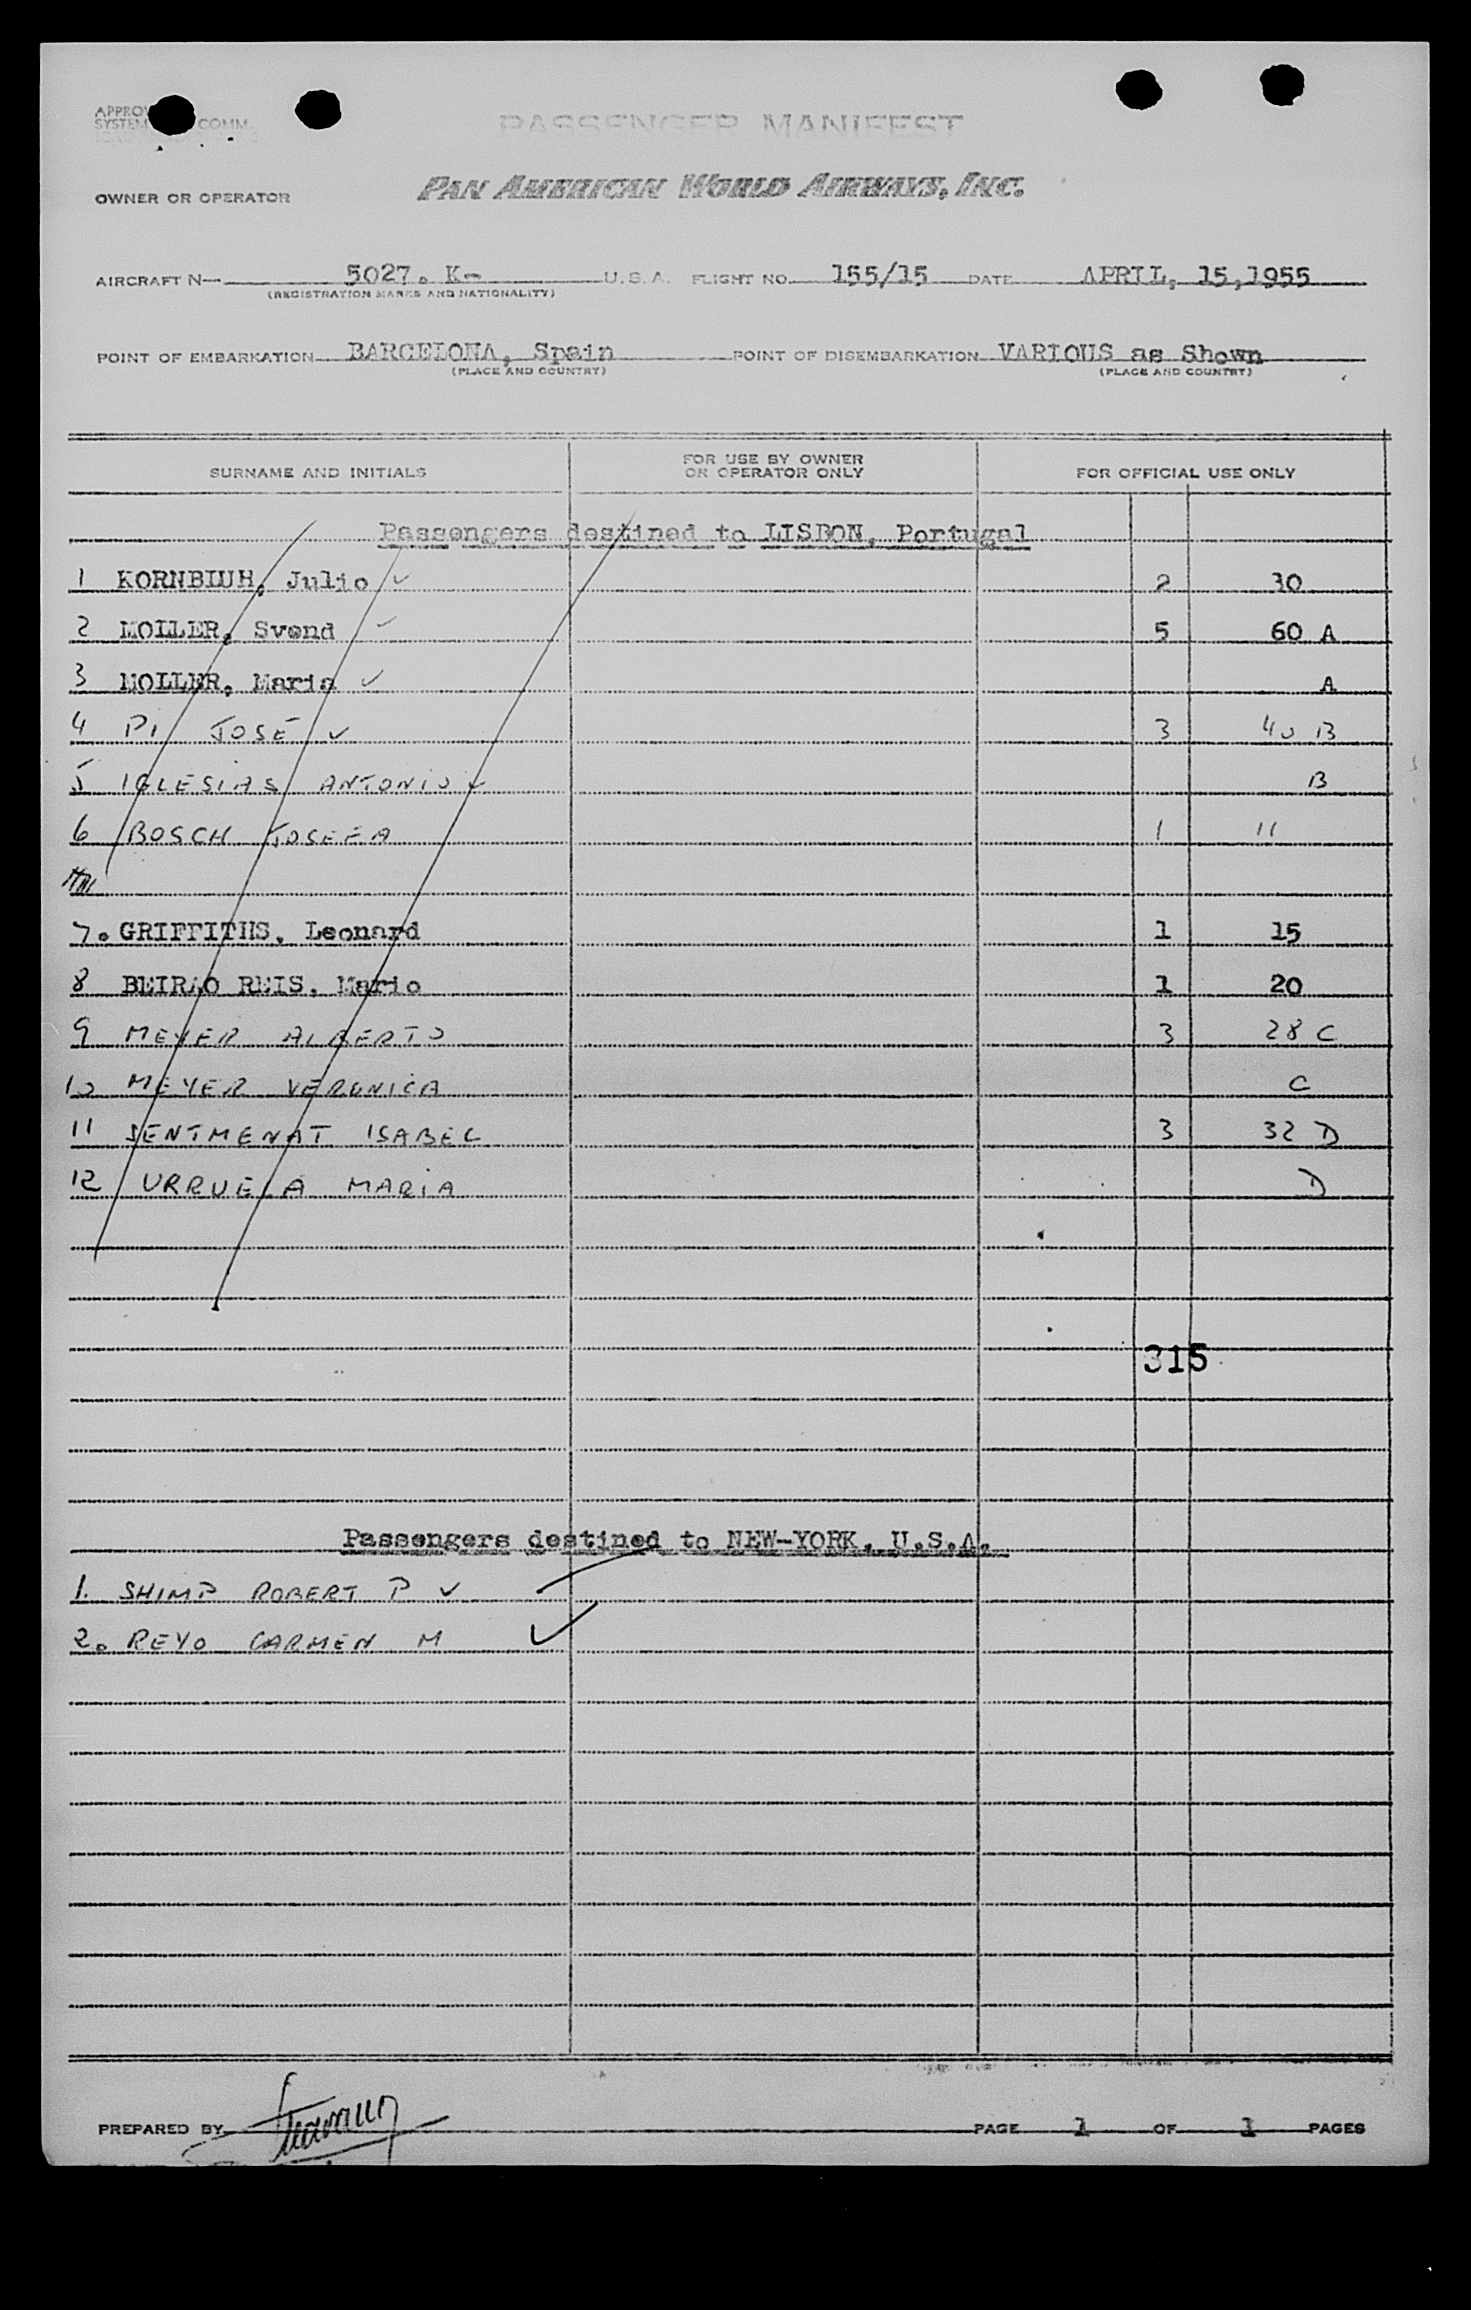 PASSENGER MANIFEST
OWNER OR OPERATOR PAN AMERICAN WORLD AIRWAYS, INC.
AIRCRAFT N— 5027. K- U.S.A. FLIGHT NO. 155/15 DATE APRIL, 15,1955
(REGISTRATION MARKS AND NATIONALITY)
POINT OF EMBARKATION BARCELONA, Spain POINT OF DISEMBARKATION VARIOUS as Shown
(PLACE AND COUNTRY) (PLACE AND COUNTRY)
SURNAME AND INITIALS FOR USE BY OWNER OR OPERATOR ONLY FOR OFFICIAL USE ONLY
Passengers destined to LISBON, Portugal
1 KORNBLUH, Julio ✓ 2 30
2 MOLLER, Svend ✓ 5 60 A
3 MOLLER, Maria ✓ A
4 PI JOSE ✓ 3 40 B
5 IGLESIAS ANTONIO ✓ B
6 BOSCH JOSEFA 1 11
7. GRIFFITHS, Leonard 1 15
8 BEIRAO REIS, Mario 1 20
9 MEYER ALBERTO 3 28 C
10 MEYER VERONICA C
11 SENTMENAT ISABEL 3 32 D
12 URRUELA MARIA D
315
Passengers destined to NEW-YORK, U.S.A.
1. SHIMP ROBERT P ✓
2. REYO CARMEN M ✓
PREPARED BY PAGE 1 OF 1 PAGES